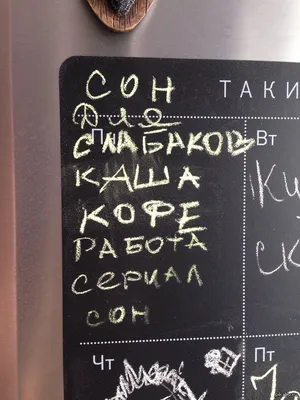 ТАКИ
Пн
Вт
СОН
ДЛЯ
СЛАБАКОВ
КАША
КОФЕ
РАБОТА
СЕРИАЛ
СОН
Ки
СК
Чт
Пт